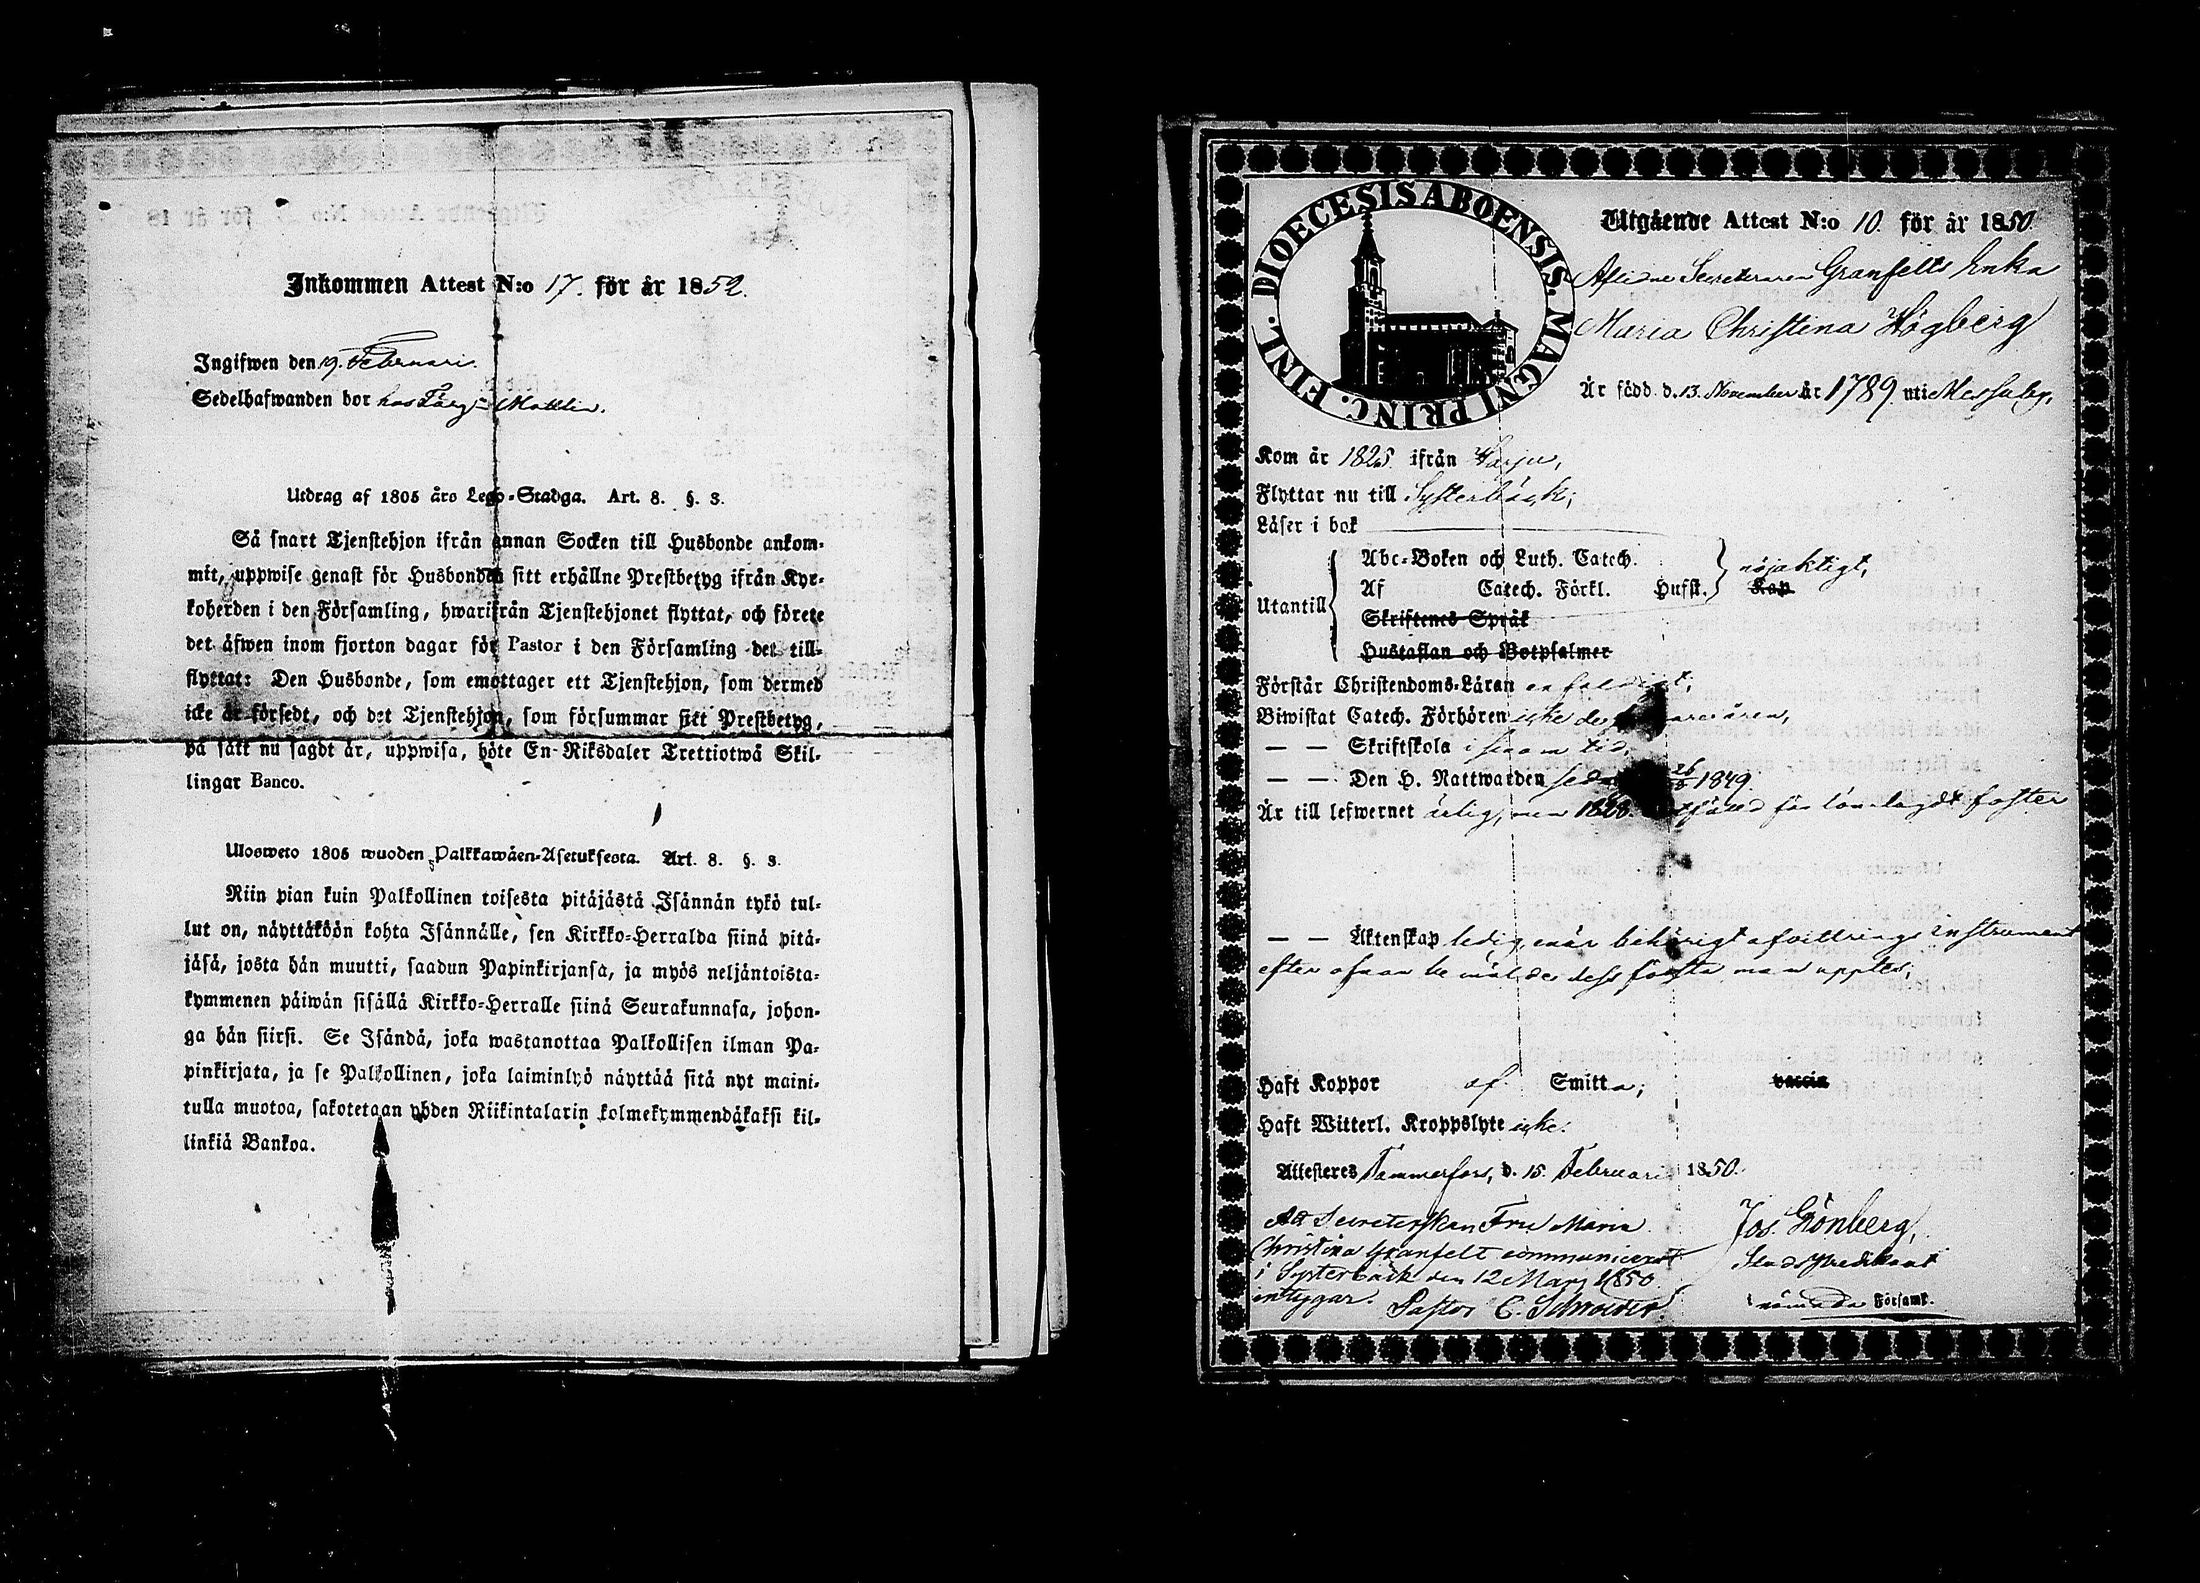 Inkommen Attest N:o 17. för år 1852.
Ingifwen den 19. Februari.
Sedelhafwanden bor hos Färg Mattlin.
Utdrag af 1805 års Lego-Stadga. Art. 8. §. 3.
Så snart Tjenstehjon ifrån annan Socken till Husbonde ankom-
mit, uppwise genast för Husbonden sitt erhållne Prestbetyg ifrån Kyr-
koherden i den Församling, hwarifrån Tjenstehjonet flyttat, och förete
det äfwen inom fjorton dagar för Pastor i den Församling det till-
flyttat: Den Husbonde, som emottager ett Tjenstehjon, som dermed
icke är försedt, och det Tjenstehjon, som försummar sitt Prestbetyg,
på sätt nu sagdt är, uppwisa, böte En Riksdaler Trettiotwå Skil-
lingar Banco.
Ulosweto 1805 wuoden Palkkawäen-Asetuksesta. Art. 8. §. 3.
Niin pian kuin Palkollinen toisesta pitäjästä Isännän tykö tul-
lut on, näyttäköön kohta Isännälle, sen Kirkko-Herralda siinä pitä-
jäsä, josta hän muutti, saadun Papinkirjansa, ja myös neljäntoista-
kymmenen päiwän sisällä Kirkko-Herralle siinä Seurakunnasa, johon-
ga hän siirsi. Se Isändä, joka wastanottaa Palkollisen ilman Pa-
pinkirjata, ja se Palkollinen, joka laiminlyö näyttää sitä nyt maini-
tulla muotoa, sakotetaan yhden Riikintalarin kolmekymmendäkaksi kil-
linkiä Bankoa.
DIOECESIS ABOENSIS. MAGNI PRINC. FINL.
Utgående Attest N:o 10. för år 1850.
Aflidne Secreteraren Granfelts Enka
Maria Christina Högberg
Är född d. 13. November år 1789 uti Messuby,
Kom år 1825 ifrån Harju,
Flyttar nu till Systerbäck;
Läser i bok
Abc-Boken och Luth. Catech.
Af Catech. Förkl. Hufst. nöjaktigt, Kap
Utantill
Skriftenes Språk
Hustaflan och Botpsalmer
Förstår Christendoms-Läran
Biwistat Catech. Förhören icke de åren,
— — Skriftskola i sinom tid,
— — Den H. Nattwarden 1849.
Är till lefwernet ärlig, men 1828. för lönlagdt foster
— — Äktenskap ledig behörigt afvittrings Instrument
efter
Haft Koppor af Smitta; vaccin
Haft Witterl. Kroppslyte icke.
Attesteres Tammerfors, d. 15. Februari 1850.
Att Secreterskan Fru Maria
Christina Granfelt communicerat
i Systerbäck den 12 Mars 1850
intygar. Pastor C. Schroeder.
Jos. Grönberg,
Stadspredikant
i nämnda Församl.